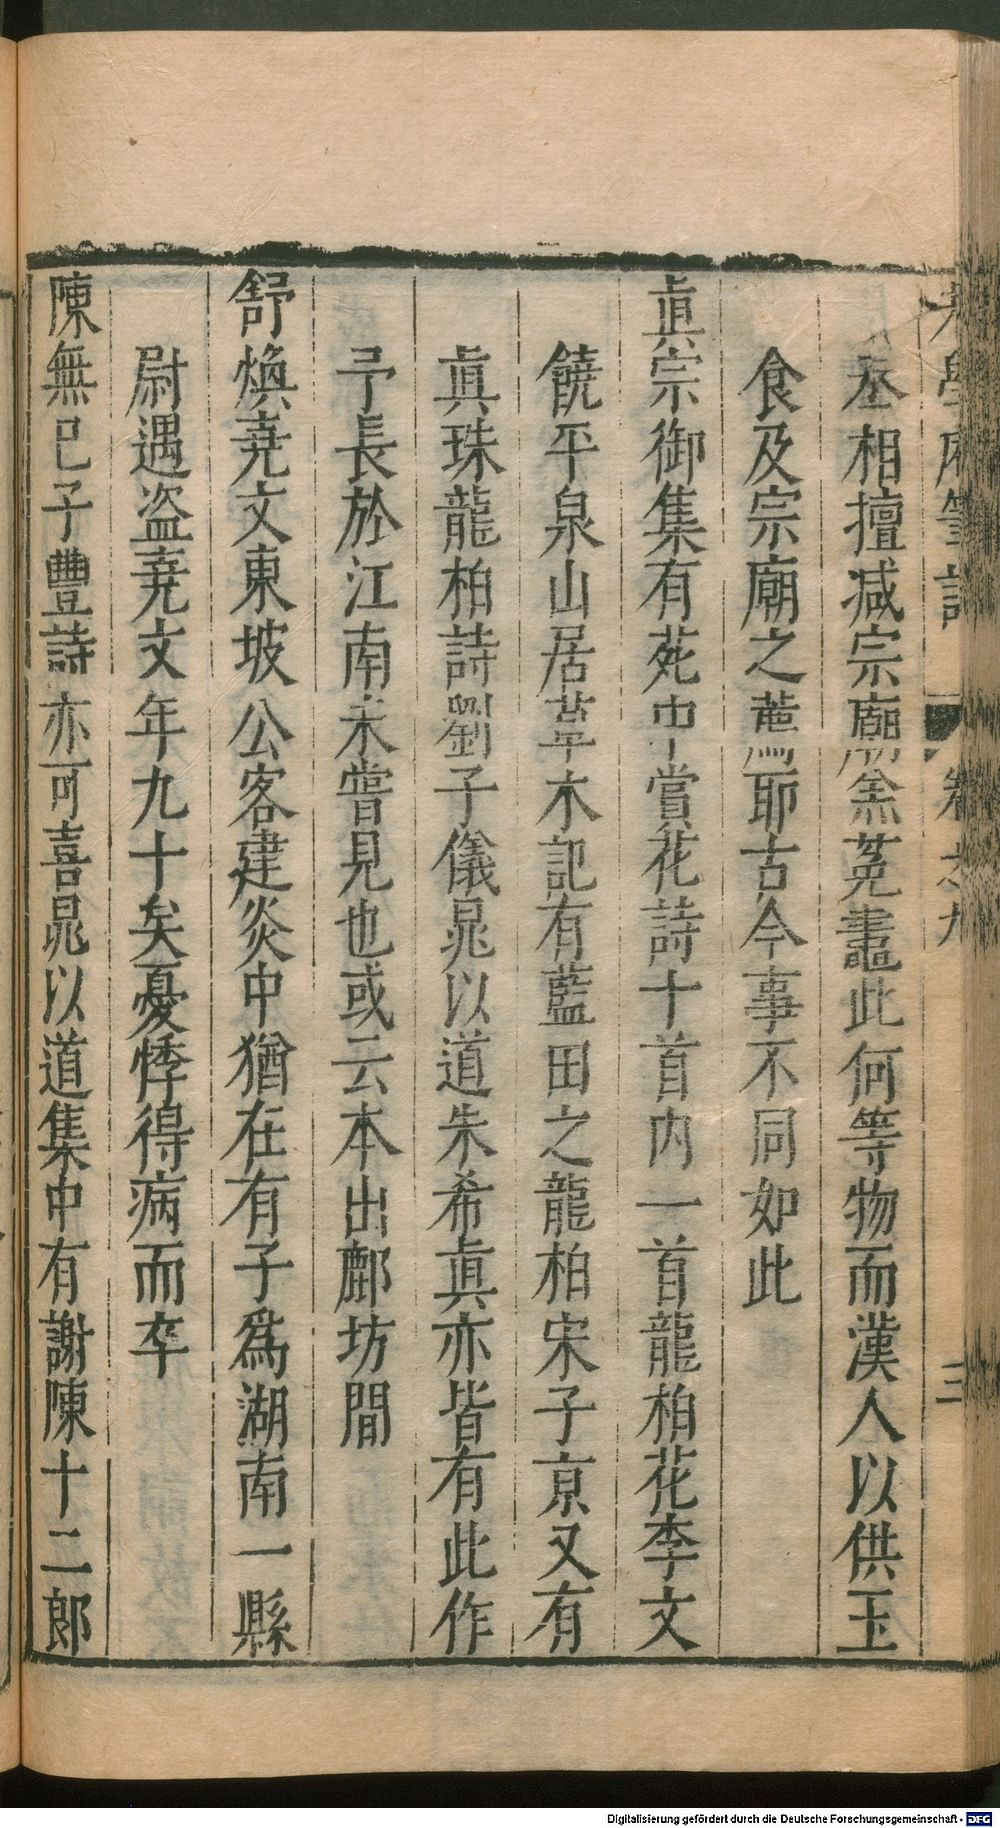 老學庵筆記 卷之九 三
丞相擅減宗廟羔菟鼃此何等物而漢人以供玉
食及宗廟之薦耶古今事不同如此
眞宗御集有苑中賞花詩十首内一首龍柏花李文
饒平泉山居草木記有藍田之龍柏宋子京又有
眞珠龍柏詩劉子儀晁以道朱希眞亦皆有此作
予長於江南未嘗見也或云本出鄜坊間
舒煥堯文東坡公客建炎中猶在有子爲湖南一縣
尉遇盜堯文年九十矣憂悸得病而卒
陳無已子豐詩亦可喜晁以道集中有謝陳十二郎
Digitalisierung gefördert durch die Deutsche Forschungsgemeinschaft - DFG